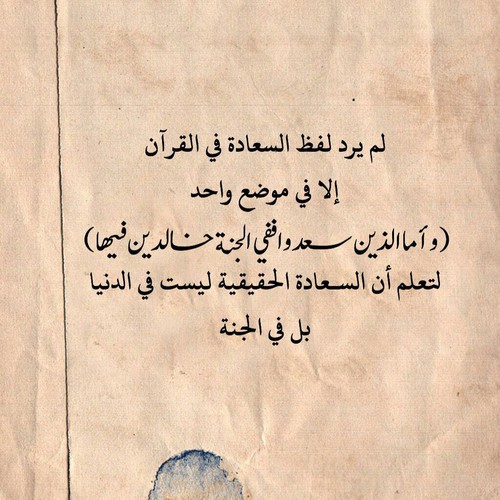 لم يرد لفظ السعادة في القرآن
إلا في موضع واحد
(وأما الذين سعدوا ففي الجنة خالدين فيها)
لتعلم أن السعادة الحقيقية ليست في الدنيا
بل في الجنة